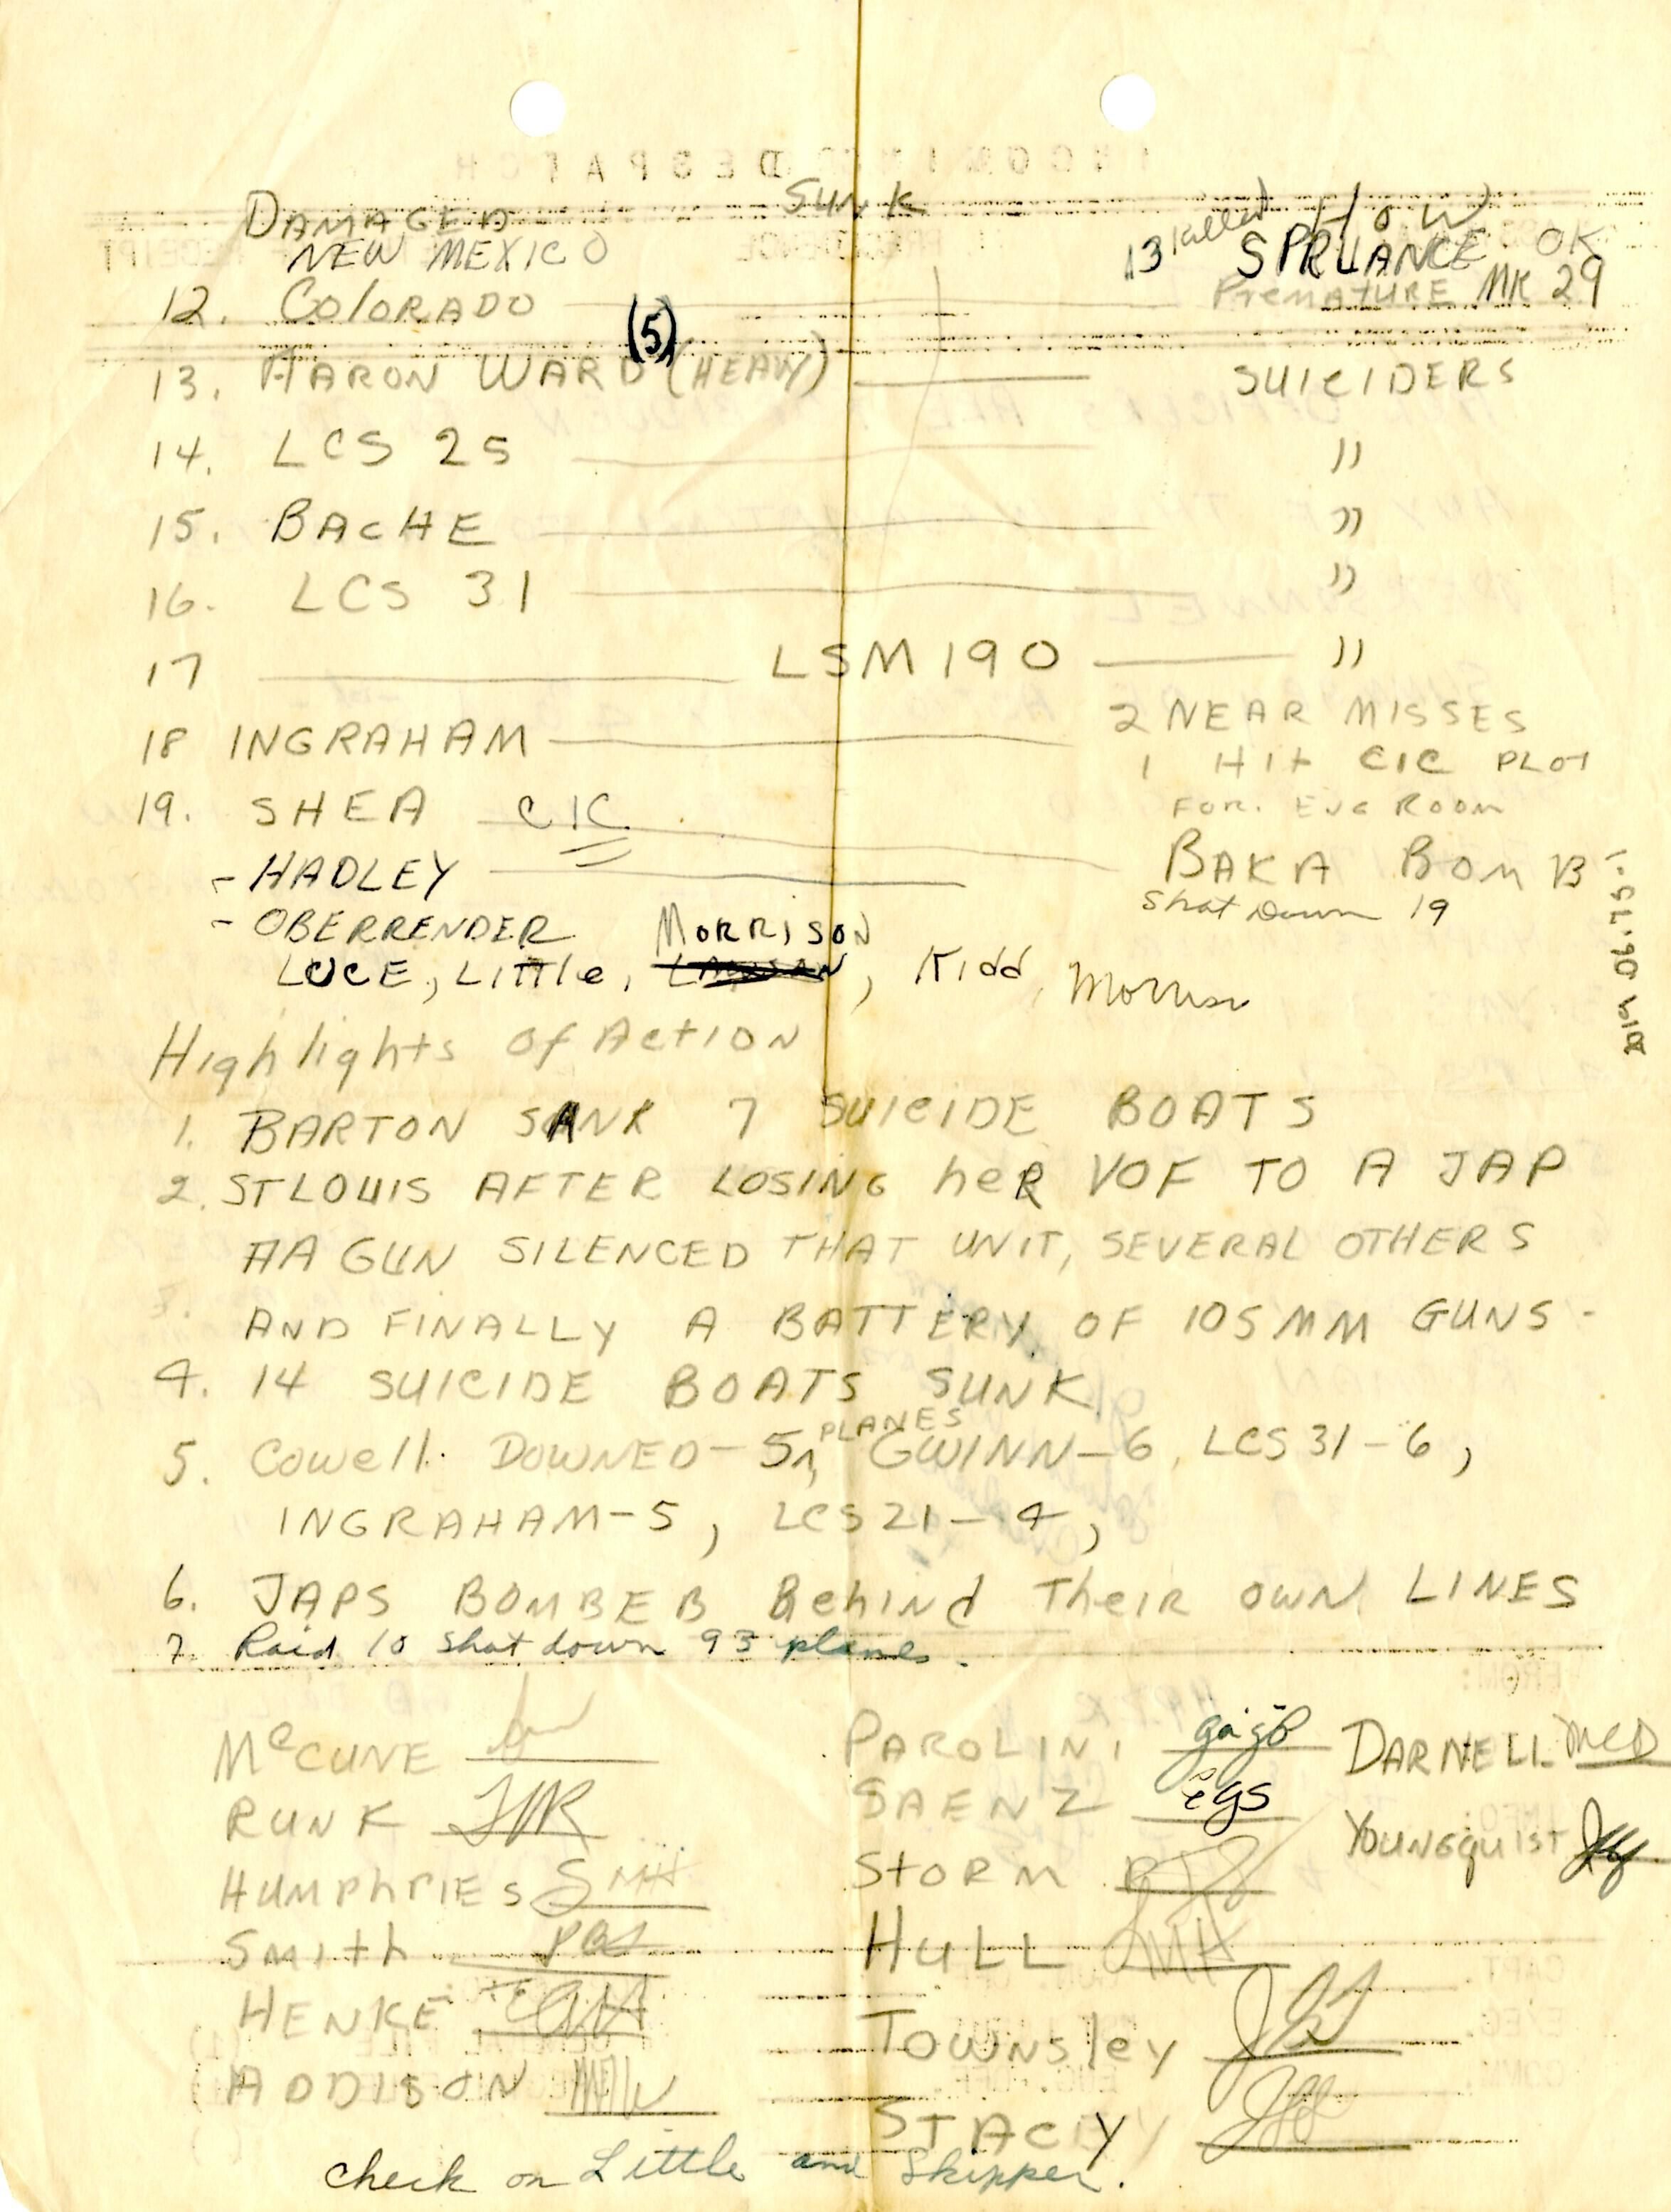 DAMAGED SUNK HOW
NEW MEXICO 13 killed SPRUANCE OK
12. COLORADO PREMATURE MK 29
(5)
13. AARON WARD (HEAVY) SUICIDERS
14. LCS 25 "
15. BACHE "
16. LCS 31 "
17 LSM 190 "
18 INGRAHAM 2 NEAR MISSES
1 Hit CIC PLOT
FOR. ENG ROOM
19. SHEA CIC BAKA BOMB
- HADLEY Shot Down 19
- OBERRENDER MORRISON
LUCE, LITTLE, Kidd, Morrison
2019.06.75-1
Highlights of ACTION
1. BARTON SANK 7 SUICIDE BOATS
2. ST LOUIS AFTER LOSING heR VOF TO A JAP
AA GUN SILENCED THAT UNIT, SEVERAL OTHERS
3. AND FINALLY A BATTERY OF 105 MM GUNS -
4. 14 SUICIDE BOATS SUNK
5. Cowell DOWNED - 5 PLANES, GWINN - 6, LCS 31 - 6,
INGRAHAM - 5, LCS 21 - 4,
6. JAPS BOMBEB BehINd TheIR OWN LINES
7. Raid 10 shot down 93 planes.
McCUNE PAROLINI gājō DARNELL MCD
RUNK JWR SAENZ egs YOUNGQUIST
HUMPhRIES SMH STORM
SMITH HULL JMH
HENKE TOWNSLEY
ADDISON STACIY
check on Little and Skipper.